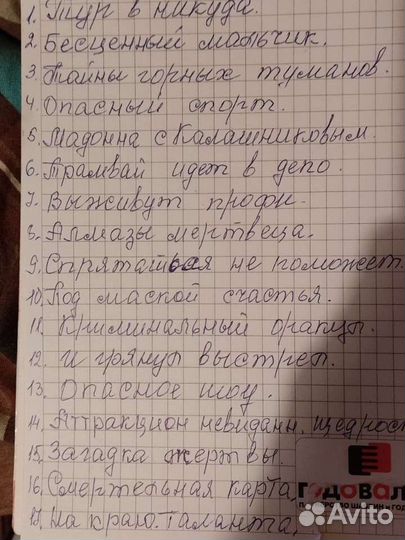 1. Тур в никуда.
2. Бесценный мальчик.
3. Тайны горных туманов.
4. Опасный спорт.
5. Мадонна с Калашниковым.
6. Трамвай идет в депо.
7. Выживут профи.
8. Алмазы мертвеца.
9. Спрятаться не поможет.
10. Под маской счастья.
11. Криминальный оракул.
12. И грянул выстрел.
13. Опасное шоу.
14. Аттракцион невиданн. щедрост
15. Загадка жертвы.
16. Смертельная карта,
17. На краю таланта,
ГОДОВАЛ
Avito